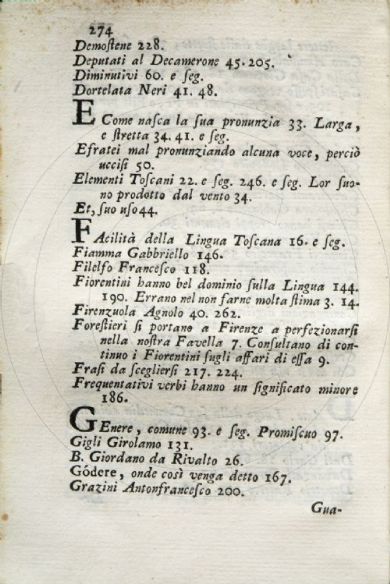 274
Demoſtene 228.
Deputati al Decamerone 45. 205.
Diminutivi 60. e ſeg.
Dortelata Neri 41. 48.
E Come naſca la ſua pronunzia 33. Larga,
e ſtretta 34. 41. e ſeg.
Efratei mal pronunziando alcuna voce, perciò
ucciſi 50.
Elementi Toſcani 22. e ſeg. 246. e ſeg. Lor ſuo-
no prodotto dal vento 34.
Et, ſuo uſo 44.
FAcilità della Lingua Toſcana 16. e ſeg.
Fiamma Gabbriello 146.
Filelfo Franceſco 118.
Fiorentini hanno bel dominio ſulla Lingua 144.
190. Errano nel non farne molta ſtima 3. 14.
Firenzuola Agnolo 40. 262.
Foreſtieri ſi portano a Firenze a perfezionarſi
nella noſtra Favella 7. Conſultano di con-
tinuo i Fiorentini ſugli affari di eſſa 9.
Fraſi da ſceglierſi 217. 224.
Frequentativi verbi hanno un ſignificato minore
186.
GEnere, comune 93. e ſeg. Promiſcuo 97.
Gigli Girolamo 131.
B. Giordano da Rivalto 26.
Gódere, onde così venga detto 167.
Grazini Antonfranceſco 200.
Gua-